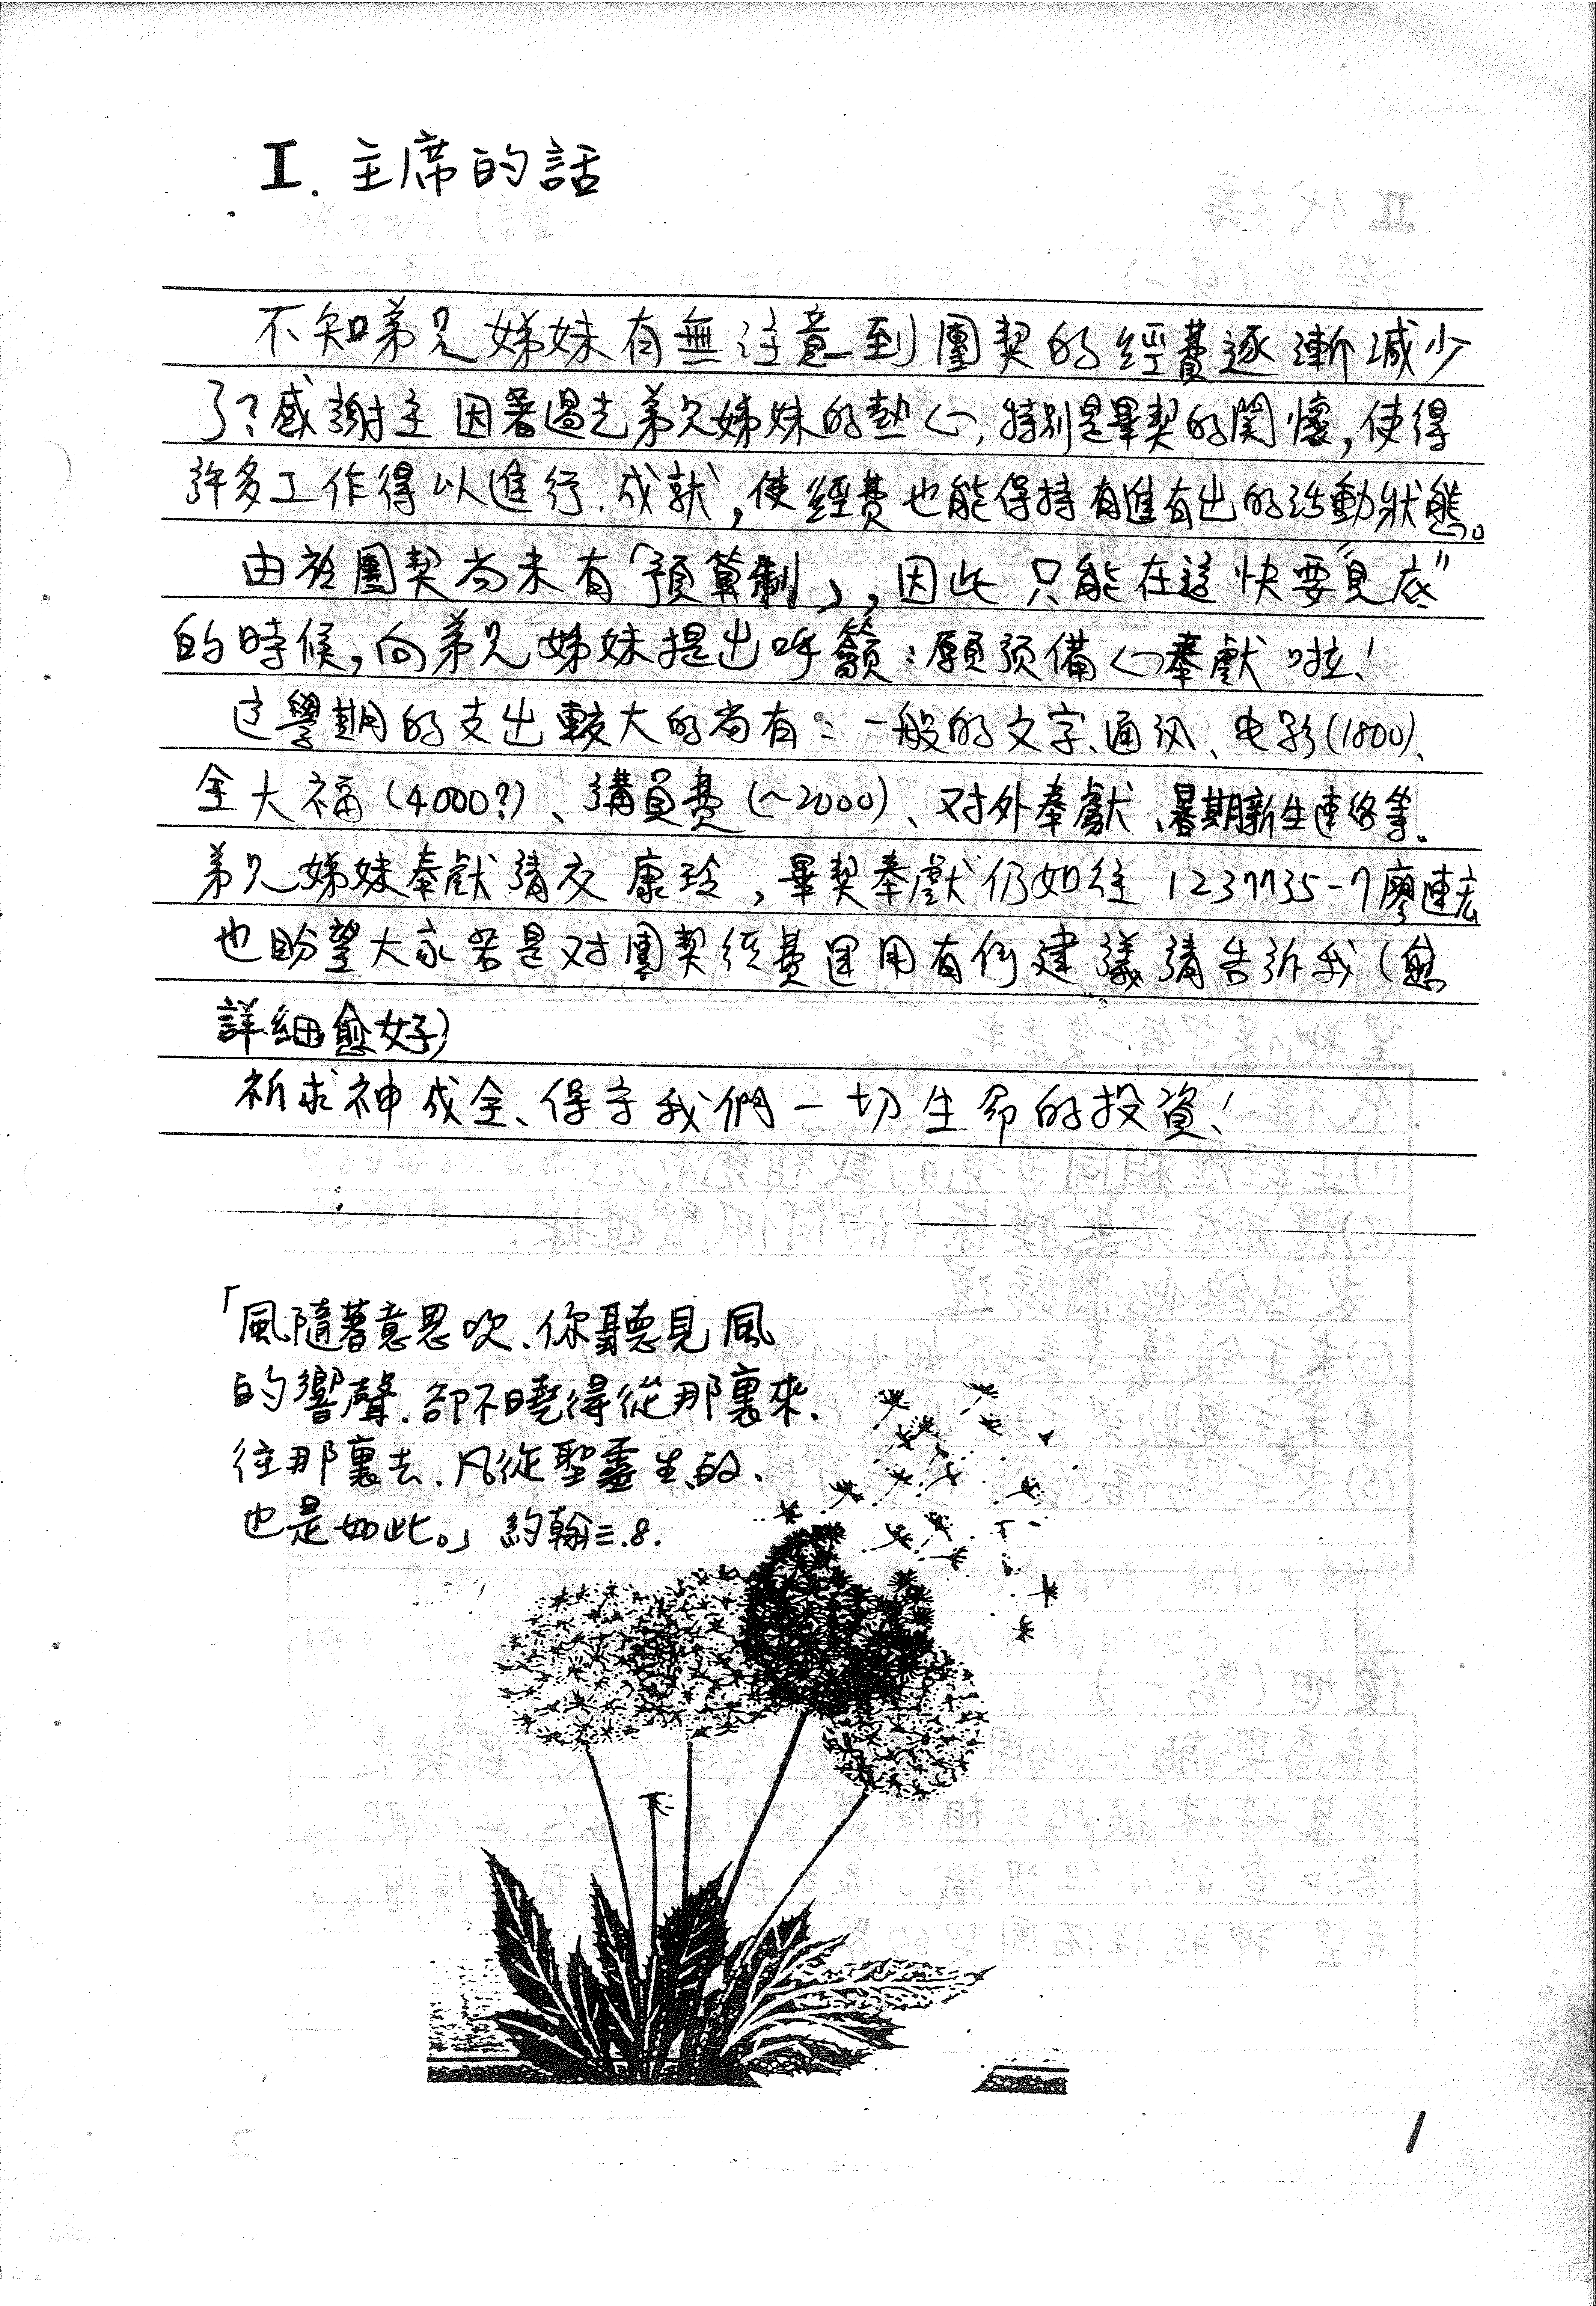 I. 主席的話
不知弟兄姊妹有無注意到團契的經費逐漸減少
了?感謝主因著過去弟兄姊妹的熱心,特別是畢契的関懷,使得
許多工作得以進行.成就,使經費也能保持有進有出的活動狀態。
由於團契尚未有「預算制」,因此只能在這快要"見底"
的時候,向弟兄姊妹提出呼籲:願預備心奉獻啦!
這學期的支出較大的尚有:一般的文字、通訊、电影(1800)、
全大福(4000?)、講員費(~2000)、对外奉獻、暑期新生連絡等。
弟兄姊妹奉獻請交康玲,畢契奉獻仍如往1237735-7廖連宏
也盼望大家若是对團契經費運用有何建議請告訴我(愈
詳細愈好)
祈求神成全、保守我們一切生命的投資!
「風隨著意思吹、你聽見風
的響聲.卻不曉得從那裏來.
往那裏去.凡從聖靈生的、
也是如此。」約翰三.8.
1